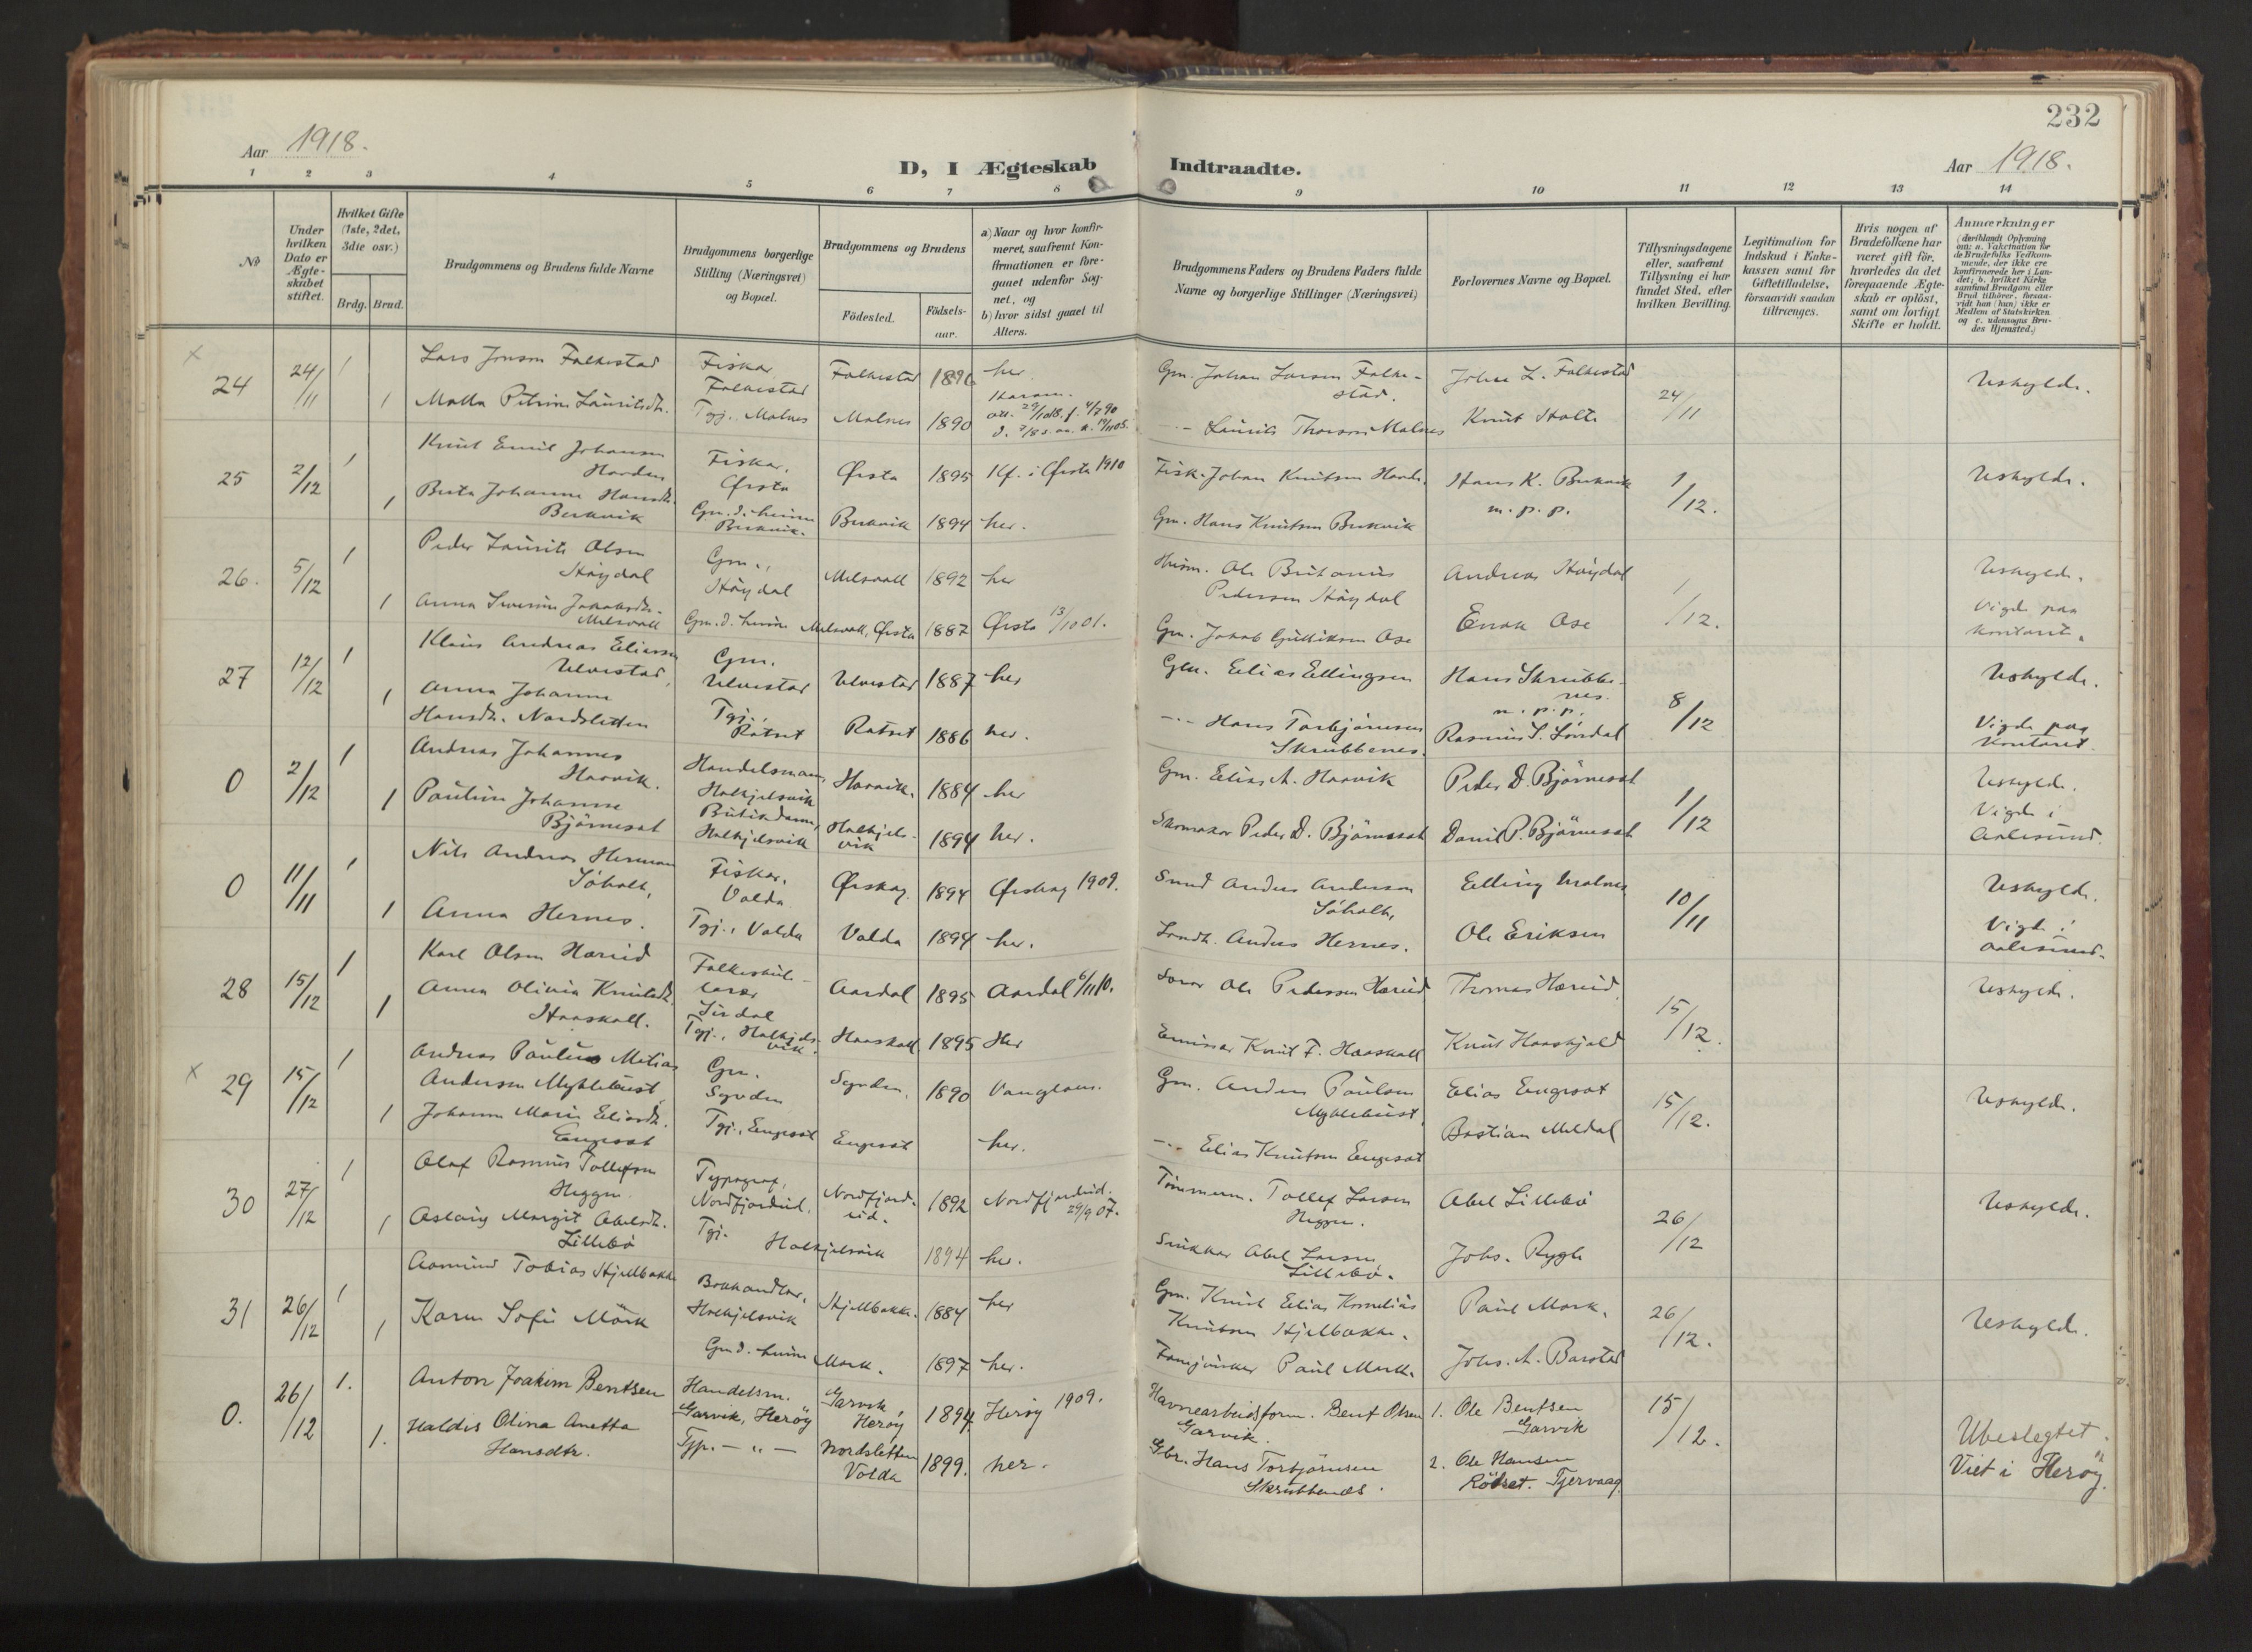 232
Aar 1918.
D, I Ægteskab Indtraadte.
Aar 1918.
1 2 3 4 5 6 7 8 9 10 11 12 13 14
No
Under hvilken Dato er Ægteskabet stiftet.
Hvilket Gifte (1ste, 2det, 3die osv.)
Brdg. Brud.
Brudgommens og Brudens fulde Navne
Brudgommens borgerlige Stilling (Næringsvei) og Bopæl.
Brudgommens og Brudens
Födested. Födselsaar.
a) Naar og hvor konfirmeret, saafremt Konfirmationen er foregaaet udenfor Sognet, og
b) hvor sidst gaaet til Alters.
Brudgommens Faders og Brudens Faders fulde Navne og borgerlige Stillinger (Næringsvei)
Forlovernes Navne og Bopæl.
Tillysningsdagene eller, saafremt Tillysning ei har fundet Sted, efter hvilken Bevilling.
Legitimation for Indskud i Enkekassen samt for Giftetilladelse, forsaavidt saadan tiltrænges.
Hvis nogen af Brudefolkene har været gift för, hvorledes da det foregaaende Ægteskab er oplöst, samt om lovligt Skifte er holdt.
Anmærkninger
(deriblandt Oplysning om: a. Vakcination for de Brudefolks Vedkommende, der ikke ere konfirmerede her i Landet; b. hvilket Kirkesamfund Brudgom eller Brud tilhörer, forsaavidt han (hun) ikke er Medlem af Statskirken og c. udensogns Brudes Hjemsted.)
x 24 24/11 1 Lars Jonsen Folkestad Fiskar Folkestad Folkestad 1896 her
Gm. Johan Larsen Folkestad. Johan L. Folkestad 24/11 Uskylde.
1 Malla Petrine Lauritsdt. Tgj. Malnes Malnes 1890
Laurits Thorsen Malnes Knut Holte
25 2/12 1 Knut Emil Johansen Hovden Fiskar, Ørsta Ørsta 1895 Kf. i Ørsta 1910
Fisk. Johan Knutsen Hovde. Hans K. Berkvik m.p.p. 1/12. Uskylde.
1 Berta Johanne Hansdt. Berkvik Gm. d. heime Berkvik. Berkvik 1894 her.
Gm. Hans Knutsen Berkvik
26. 5/12 1 Peder Laurits Olsen Höydal Gm., Höydal Melsvoll 1892 her
Husm. Ole Britanus Pedersen Höydal Andreas Höydal 1/12. Uskylde. Vigde paa kontoret.
1 Anna Severine Jakobsdt. Melsvoll Gm. d. heime Melsvoll, Ørsta 1887 Ørsta 13/10 01.
Gm. Jakob Gullikson Ose Enok Ose
27 12/12 1 Klaus Andreas Eliassen Ulvestad, Gm. Ulvestad Ulvestad 1887 her
Gm. Elias Ellingsen Hans Skrubbenes. m.p.p. 8/12 Uskylde.
1 Anna Johanne Hansdt. Nordsletten Tgj., Rotset Rotset 1886 her.
Hans Torbjörnsen Skrubbenes. Rasmus S. Lövdal Vigde paa kontoret.
0 2/12 1 Andreas Johannes Haavik. Handelsmann, Halkjelsvik Haavik. 1884 her
Gm. Elias A. Haavik Peder D. Björneset 1/12 Uskylde.
1 Pauline Johanne Björneset Butikdame, Halkjelsvik Halkjelsvik 1894 her.
Skomakar Peder D. Björneset Daniel P. Björneset Vigde i Aalesund.
0 11/11 1 Nils Andreas Herman Söholt, Fiskar, Volda Ørskog 1894 Ørskog 1909.
Smed Anders Andersen Söholt, Elling Malnes 10/11 Uskylde.
1 Anna Hernes. Tgj., Volda Volda 1894 her.
Landh. Anders Hernes. Ole Eriksen Vigde i Aalesund.
28 15/12 1 Karl Olsen Hæreid Folkeskulelærar Aardal 1895 Aardal 6/11 10.
Ole Pedersen Hæreid Thomas Hæreid 15/12. Uskylde.
1 Anna Olivia Knutsdt. Haaskoll. Tgj., Halkjelsvik. Haaskoll 1895 Her
Emissær Knut F. Haaskoll Knut Haaskjold
x 29 15/12 1 Andreas Paulus Matias Andersen Myklebust Gm. Syvden Syvden. 1890
Gm. Anders Paulsen Myklebust, Elias Engeset 15/12. Uskylde.
1 Johanne Marie Eliasdt. Engeset Tgj., Engeset Engeset her.
Elias Knutsen Engeset Bastian Meldal
30 27/12 1 Olaf Rasmus Tollefsen Heggen. Typograf, Nordfjordeid. Nordfjordeid. 1892 Nordfjordeid. 29/9 07.
Tömmerm. Tollef Larsen Heggen. Abel Lillebö 26/12 Uskylde.
1 Aslaug Margit Abelsdt. Lillebö Tgj. Halkjelsvik 1894 her.
Snikkar Abel Larsen Lillebö. Johs. Rygh
31 26/12 1 Aamund Tobias Hjellbakke Bokhandlar, Halkjelsvik Hjellbakke. 1884 her
Gm. Knut Elias Kornelius Knutsen Hjellbakke. Paul Mork. 26/12. Uskylde.
1 Karen Sofie Mörk Gm d. heime Mork. 1897 her.
Paul Mork. Johs. A. Barstad
0. 26/12 1. Anton Joakim Bentsen Handelsm. Garvik, Heröy Garvik, Heröy 1894. Heröy 1909.
Havnearbeidsform. Bent Olsen Garvik. 1. Ole Bentsen Garvik 15/12. Ubeslegtet.
1. Haldis Olina Anetta Hansdtr. Tjp. — „ — Nordsletten Volda 1899. her.
Gbr. Hans Torbjörnsen Skrubbenes. 2. Ole Hansen Rödset. Tjervaag. Viet i Heröy.